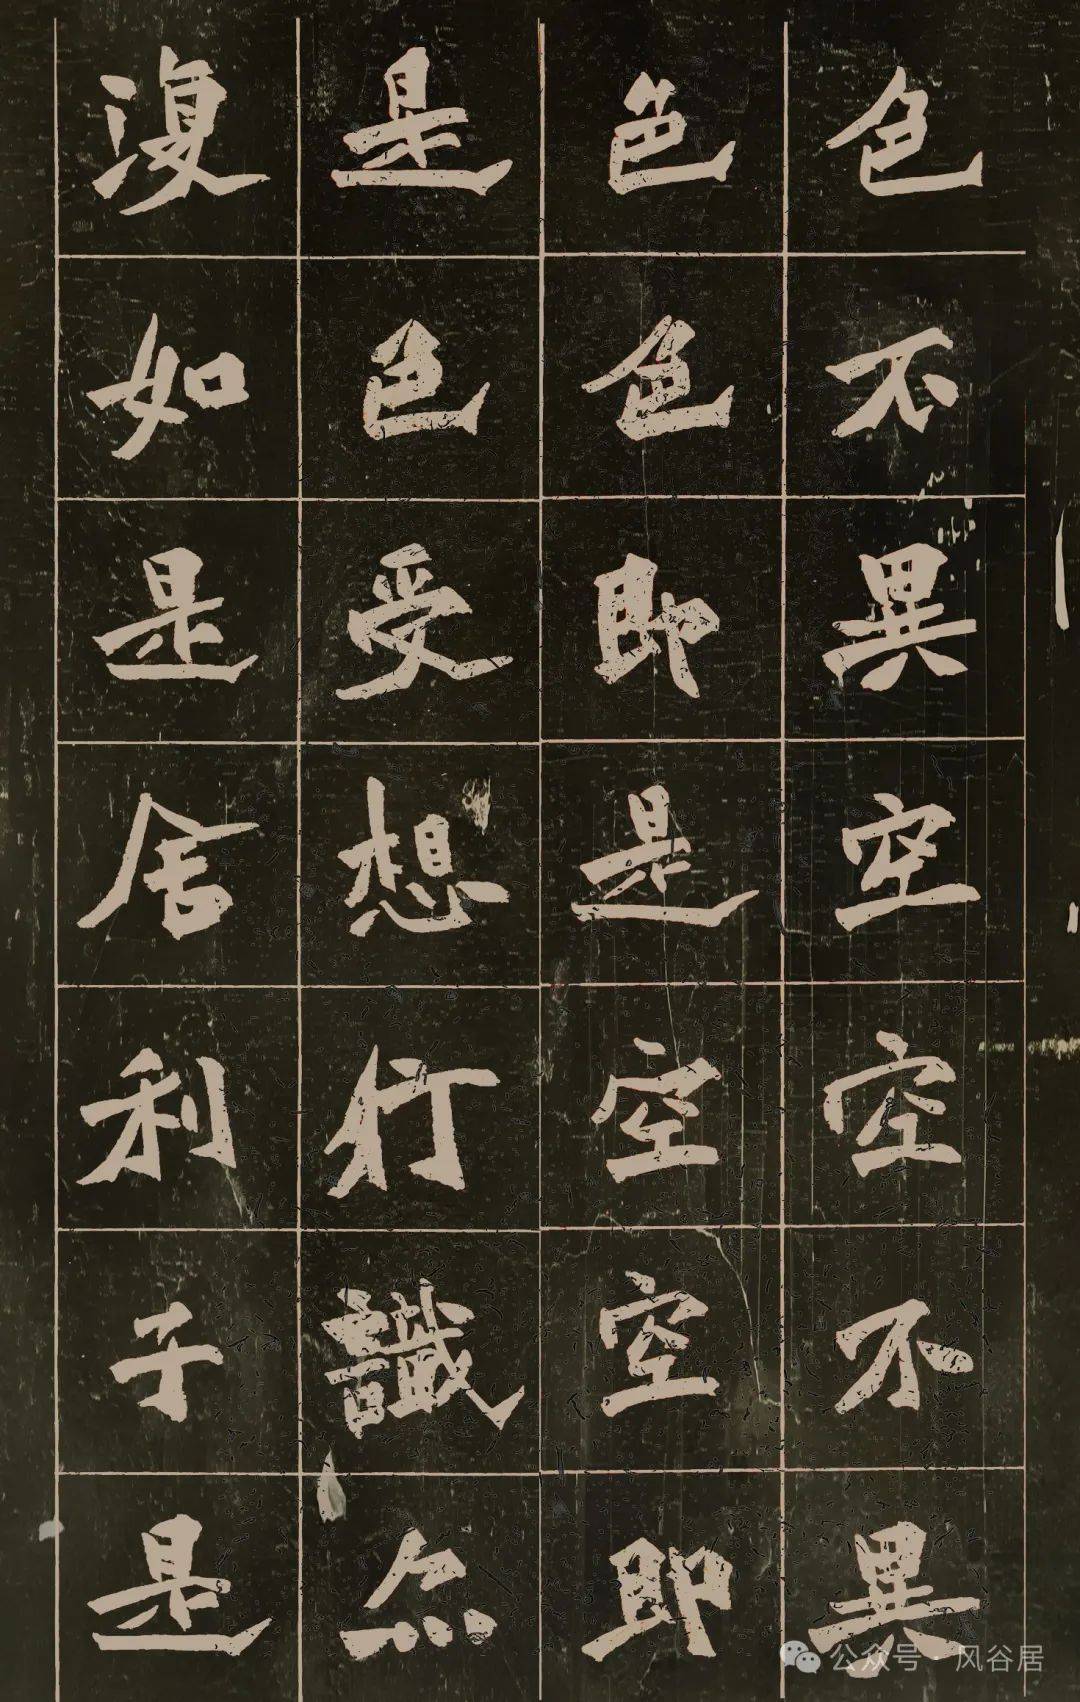 色不異空空不異
色色即是空空即
是色受想行識亦
復如是舍利子是
公众号·风谷居